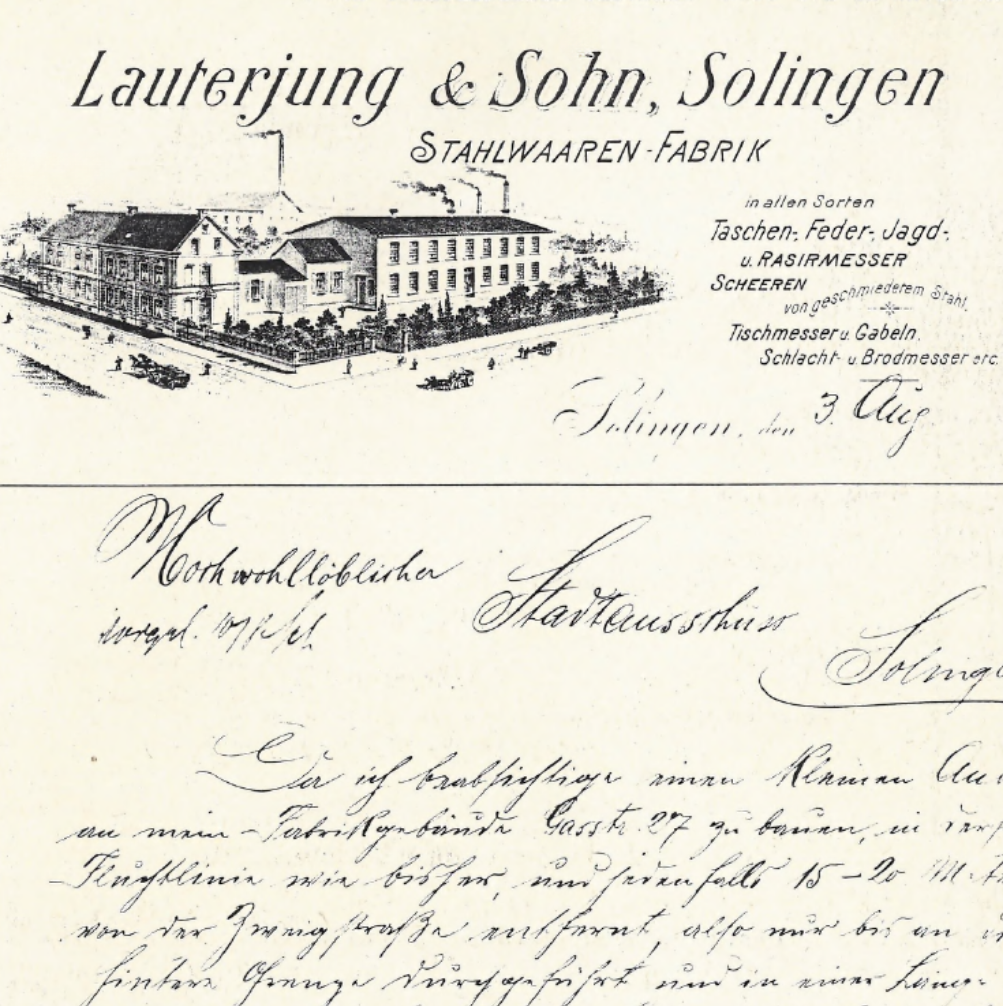 Lauterjung & Sohn, Solingen
STAHLWAAREN-FABRIK
in allen Sorten
Taschen-, Feder-, Jagd-,
u. RASIRMESSER
SCHEEREN
von geschmiedetem Stahl.
Tischmesser u. Gabeln,
Schlacht- u. Brodmesser etc.
Solingen, den 3. Aug
Hochwohllöblicher
Stadtausschuss
Solinge
Da ich beabsichtige einen kleinen
an mein Fabrikgebäude Gasstr. 27 zu bauen, in
Fluchtlinie wie bisher, und jedenfalls 15-20
von der Zweigstraße entfernt, also nur bis an
hintere Grenze durchgeführt und in einer Läng-